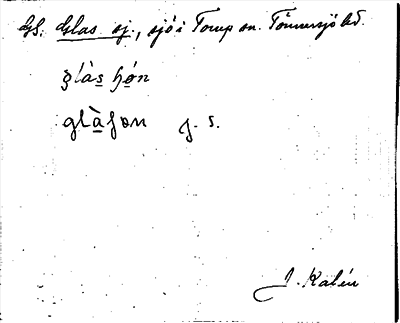 Gl. Glas sj., sjö i Torup sn. Tönnersjö hd.
glàs hón
glàfɵn f. s.
J. Kalén